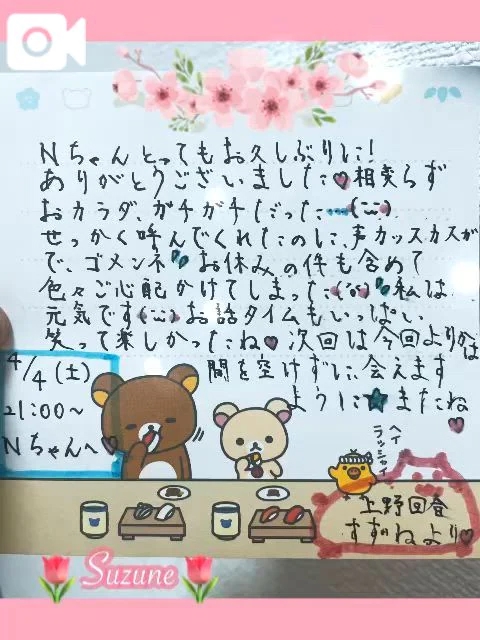 Nちゃんとってもお久しぶりに!
ありがとうございました♡相変らず
おカラダ、ガチガチだった…(;;)
せっかく呼んでくれたのに、声カッスカスが
で、ゴメンネ お休みの件も含めて
色々ご心配かけてしまった(;;)私は
元気です(;;)お話タイムもいっぱい
笑って楽しかったね♡次回は今回よりかは
間を空けずに会えます
ように★またね
♡
4/4(土)
21:00〜
Nちゃんへ♡
ヘイ
ラッシャイ
上野回春
すずねより♡
Suzune